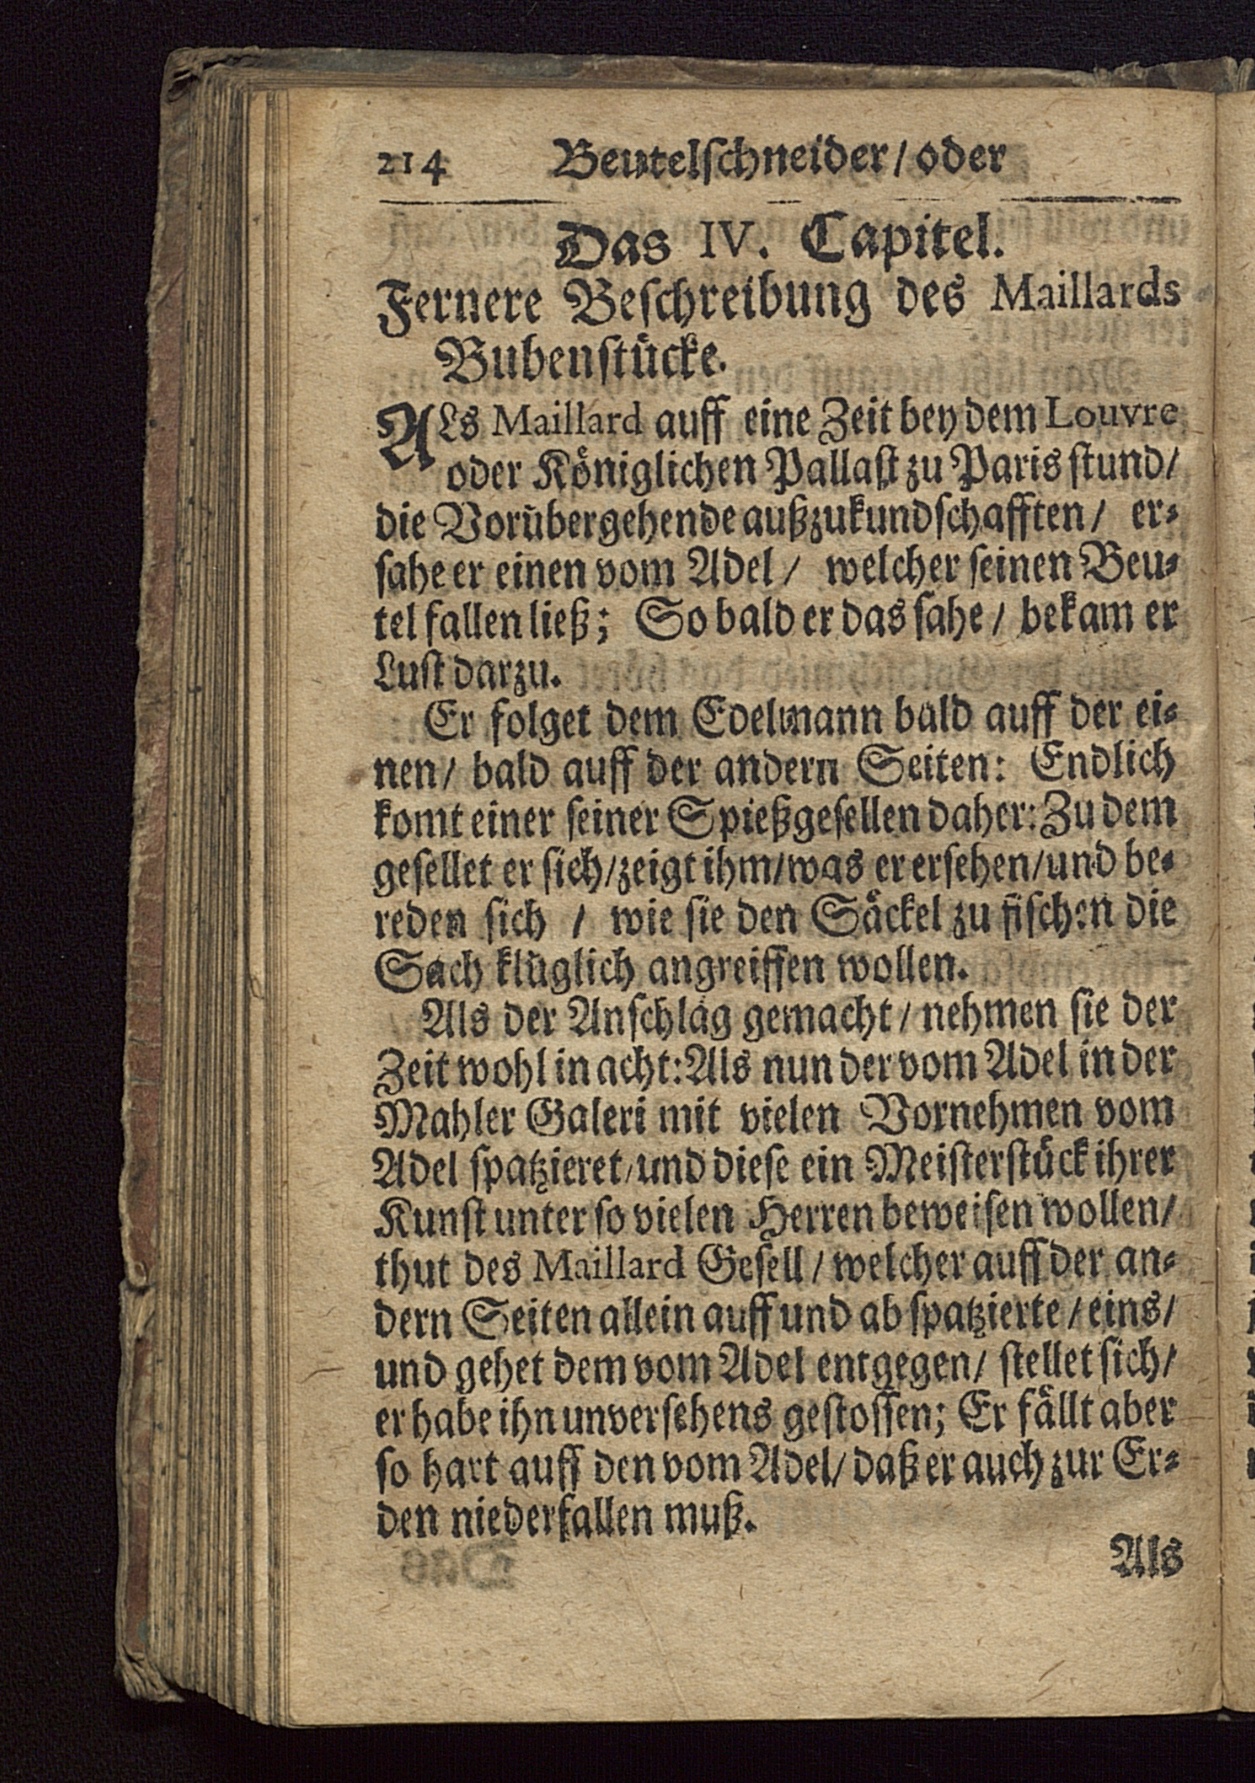 214 Beutelſchneider / oder
Das IV. Capitel.
Fernere Beſchreibung des Maillards
Bubenſtücke.
ALs Maillard auff eine Zeit bey dem Louvre
oder Königlichen Pallaſt zu Paris ſtund /
die Vorübergehende außzukundſchafften / er⸗
ſahe er einen vom Adel / welcher ſeinen Beu⸗
tel fallen ließ; So bald er das ſahe / bekam er
Luſt darzu.
Er folget dem Edelmann bald auff der ei⸗
nen / bald auff der andern Seiten: Endlich
komt einer ſeiner Spießgeſellen daher: Zu dem
geſellet er ſich / zeigt ihm / was er erſehen / und be⸗
reden ſich / wie ſie den Säckel zu fiſchen die
Sach klüglich angreiffen wollen.
Als der Anſchlag gemacht / nehmen ſie der
Zeit wohl in acht: Als nun der vom Adel in der
Mahler Galeri mit vielen Vornehmen vom
Adel ſpatzieret / und dieſe ein Meiſterſtück ihrer
Kunſt unter ſo vielen Herren beweiſen wollen /
thut des Maillard Geſell / welcher auff der an⸗
dern Seiten allein auff und ab ſpatzierte / eins /
und gehet dem vom Adel entgegen / ſtellet ſich /
er habe ihn unverſehens geſtoſſen; Er fällt aber
ſo hart auff den vom Adel / daß er auch zur Er⸗
den niederfallen muß.
Als